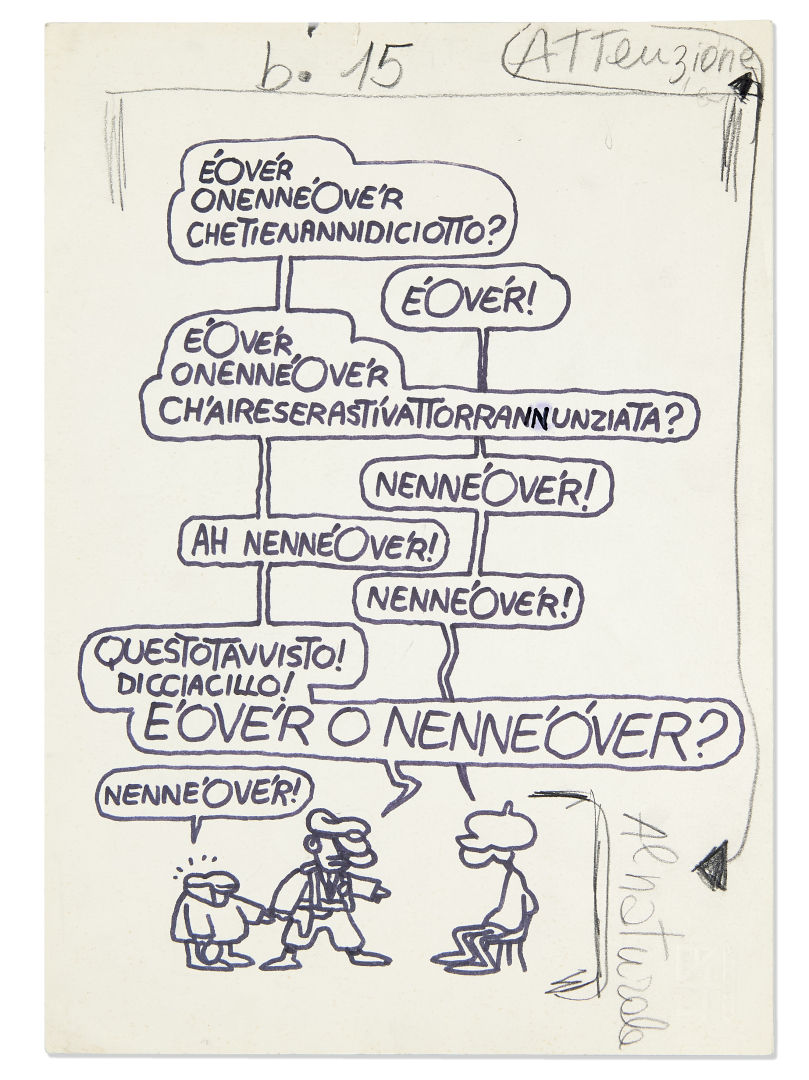 b. 15
ATTenzione
É OVE'R
ONENNE'OVE'R
CHETIENANNIDICIOTTO?
É OVE'R!
É OVE'R
ONENNE'OVE'R
CH'AIRESERASTÍVATTORRANNUNZIATA?
NENNE'OVE'R!
AH NENNE'OVE'R!
NENNE'OVE'R!
QUESTOTAVVISTO!
DICCIACILLO!
E'OVE'R O NENNE'OVER?
NENNE'OVE'R!
Al naturale